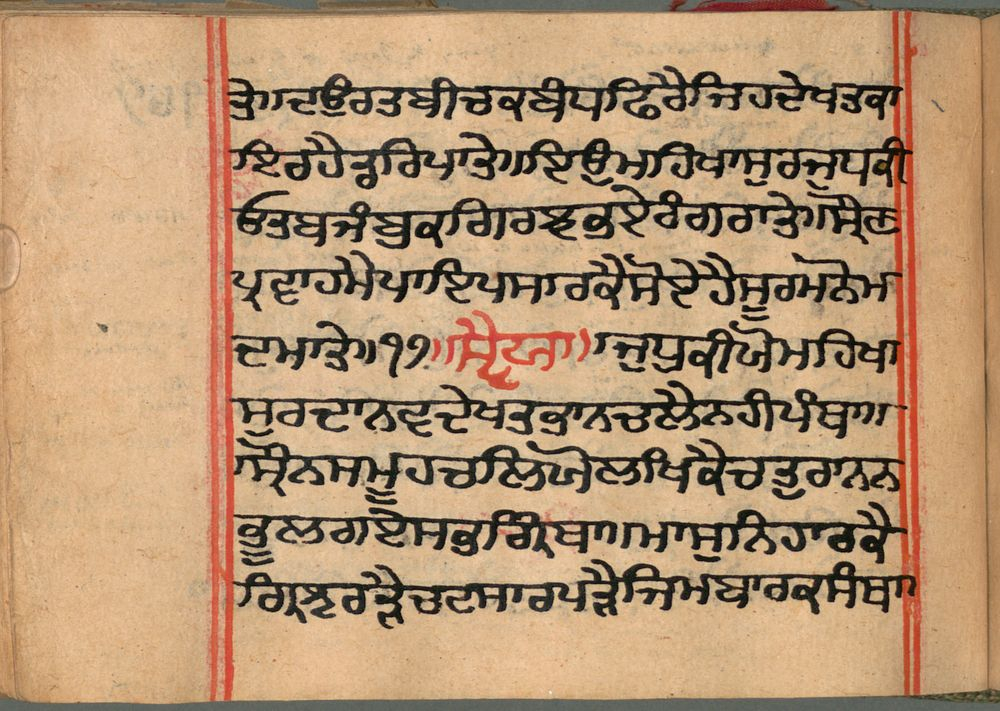 ਤੇ॥ਦਉਰਤਬੀਚਕਬੰਧਫਿਰੈਜਿਹਦੇਖਤਕਾ
ਇਰਹੈਡਰਿਪਾਤੇ॥ਇਉਮਹਿਖਾਸੁਰਜੁਧਕੀ
ਓਤਬਜੰਬੁਕਗਿਰਝਕੁਏਰੰਗਰਾਤੇ॥ਸ੍ਰੌਣ
ਪ੍ਰਵਾਹਮੈਪਾਇਪਸਾਰਕੈਸੋਏਹੈਸੂਰਮਨੋਮ
ਦਮਾਤੇ॥੧੭॥ਸ੍ਵੈਯਾ॥ਜੁਧੁਕੀਯੋਮਹਿਖਾ
ਸੁਰਦਾਨਵਦੇਖਤਭਾਨਚਲੈਨਹੀਪੰਥਾ॥
ਸ੍ਰੌਨਸਮੂਹਚਲਿਯੋਲਖਿਕੈਚਤੁਰਾਨਨ
ਭੂਲਗਏਸਭਗ੍ਰਿੰਥਾ॥ਮਾਸੁਨਿਹਾਰਕੈ
ਗ੍ਰਿਝਰੜੈਚਟਸਾਰਪੜੈਜਿਮਬਾਰਕਸੰਥਾ॥